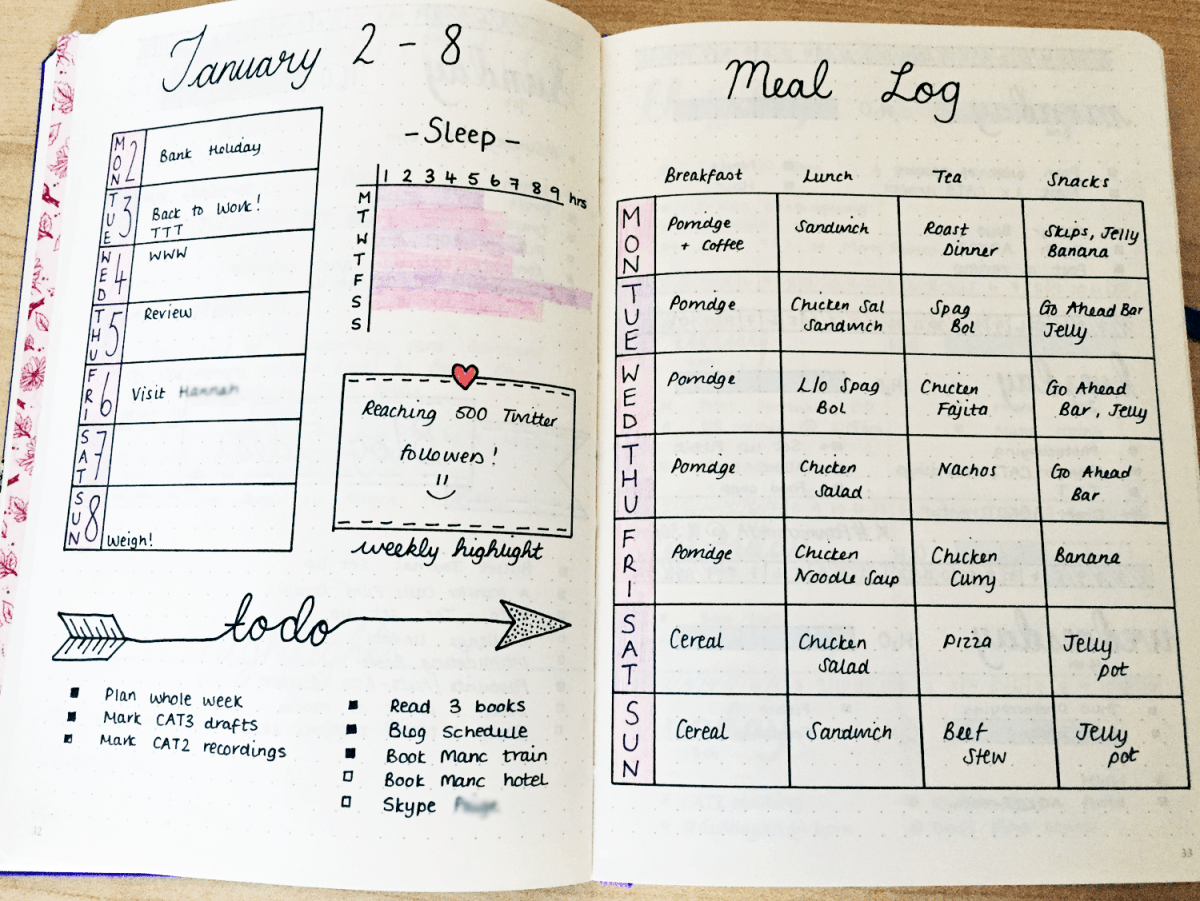 January 2 - 8
MON 2 Bank Holiday
TUE 3 Back to Work!
TTT
WED 4 WWW
THU 5 Review
FRI 6 Visit
SAT 7
SUN 8 Weigh!
- Sleep -
1 2 3 4 5 6 7 8 9 hrs
M
T
W
T
F
S
S
Reaching 500 Twitter
followers!
weekly highlight
to do
Plan whole week
Mark CAT3 drafts
Mark CAT2 recordings
Read 3 books
Blog schedule
Book Manc train
Book Manc hotel
Skype
32
Meal Log
Breakfast Lunch Tea Snacks
MON
Porridge
+ Coffee
Sandwich
Roast
Dinner
Skips, Jelly
Banana
TUE
Porridge
Chicken Sal
Sandwich
Spag
Bol
Go Ahead Bar
Jelly
WED
Porridge
L/o Spag
Bol
Chicken
Fajita
Go Ahead
Bar, Jelly
THU
Porridge
Chicken
Salad
Nachos
Go Ahead
Bar
FRI
Porridge
Chicken
Noodle Soup
Chicken
Curry
Banana
SAT
Cereal
Chicken
Salad
Pizza
Jelly
pot
SUN
Cereal
Sandwich
Beef
Stew
Jelly
pot
33